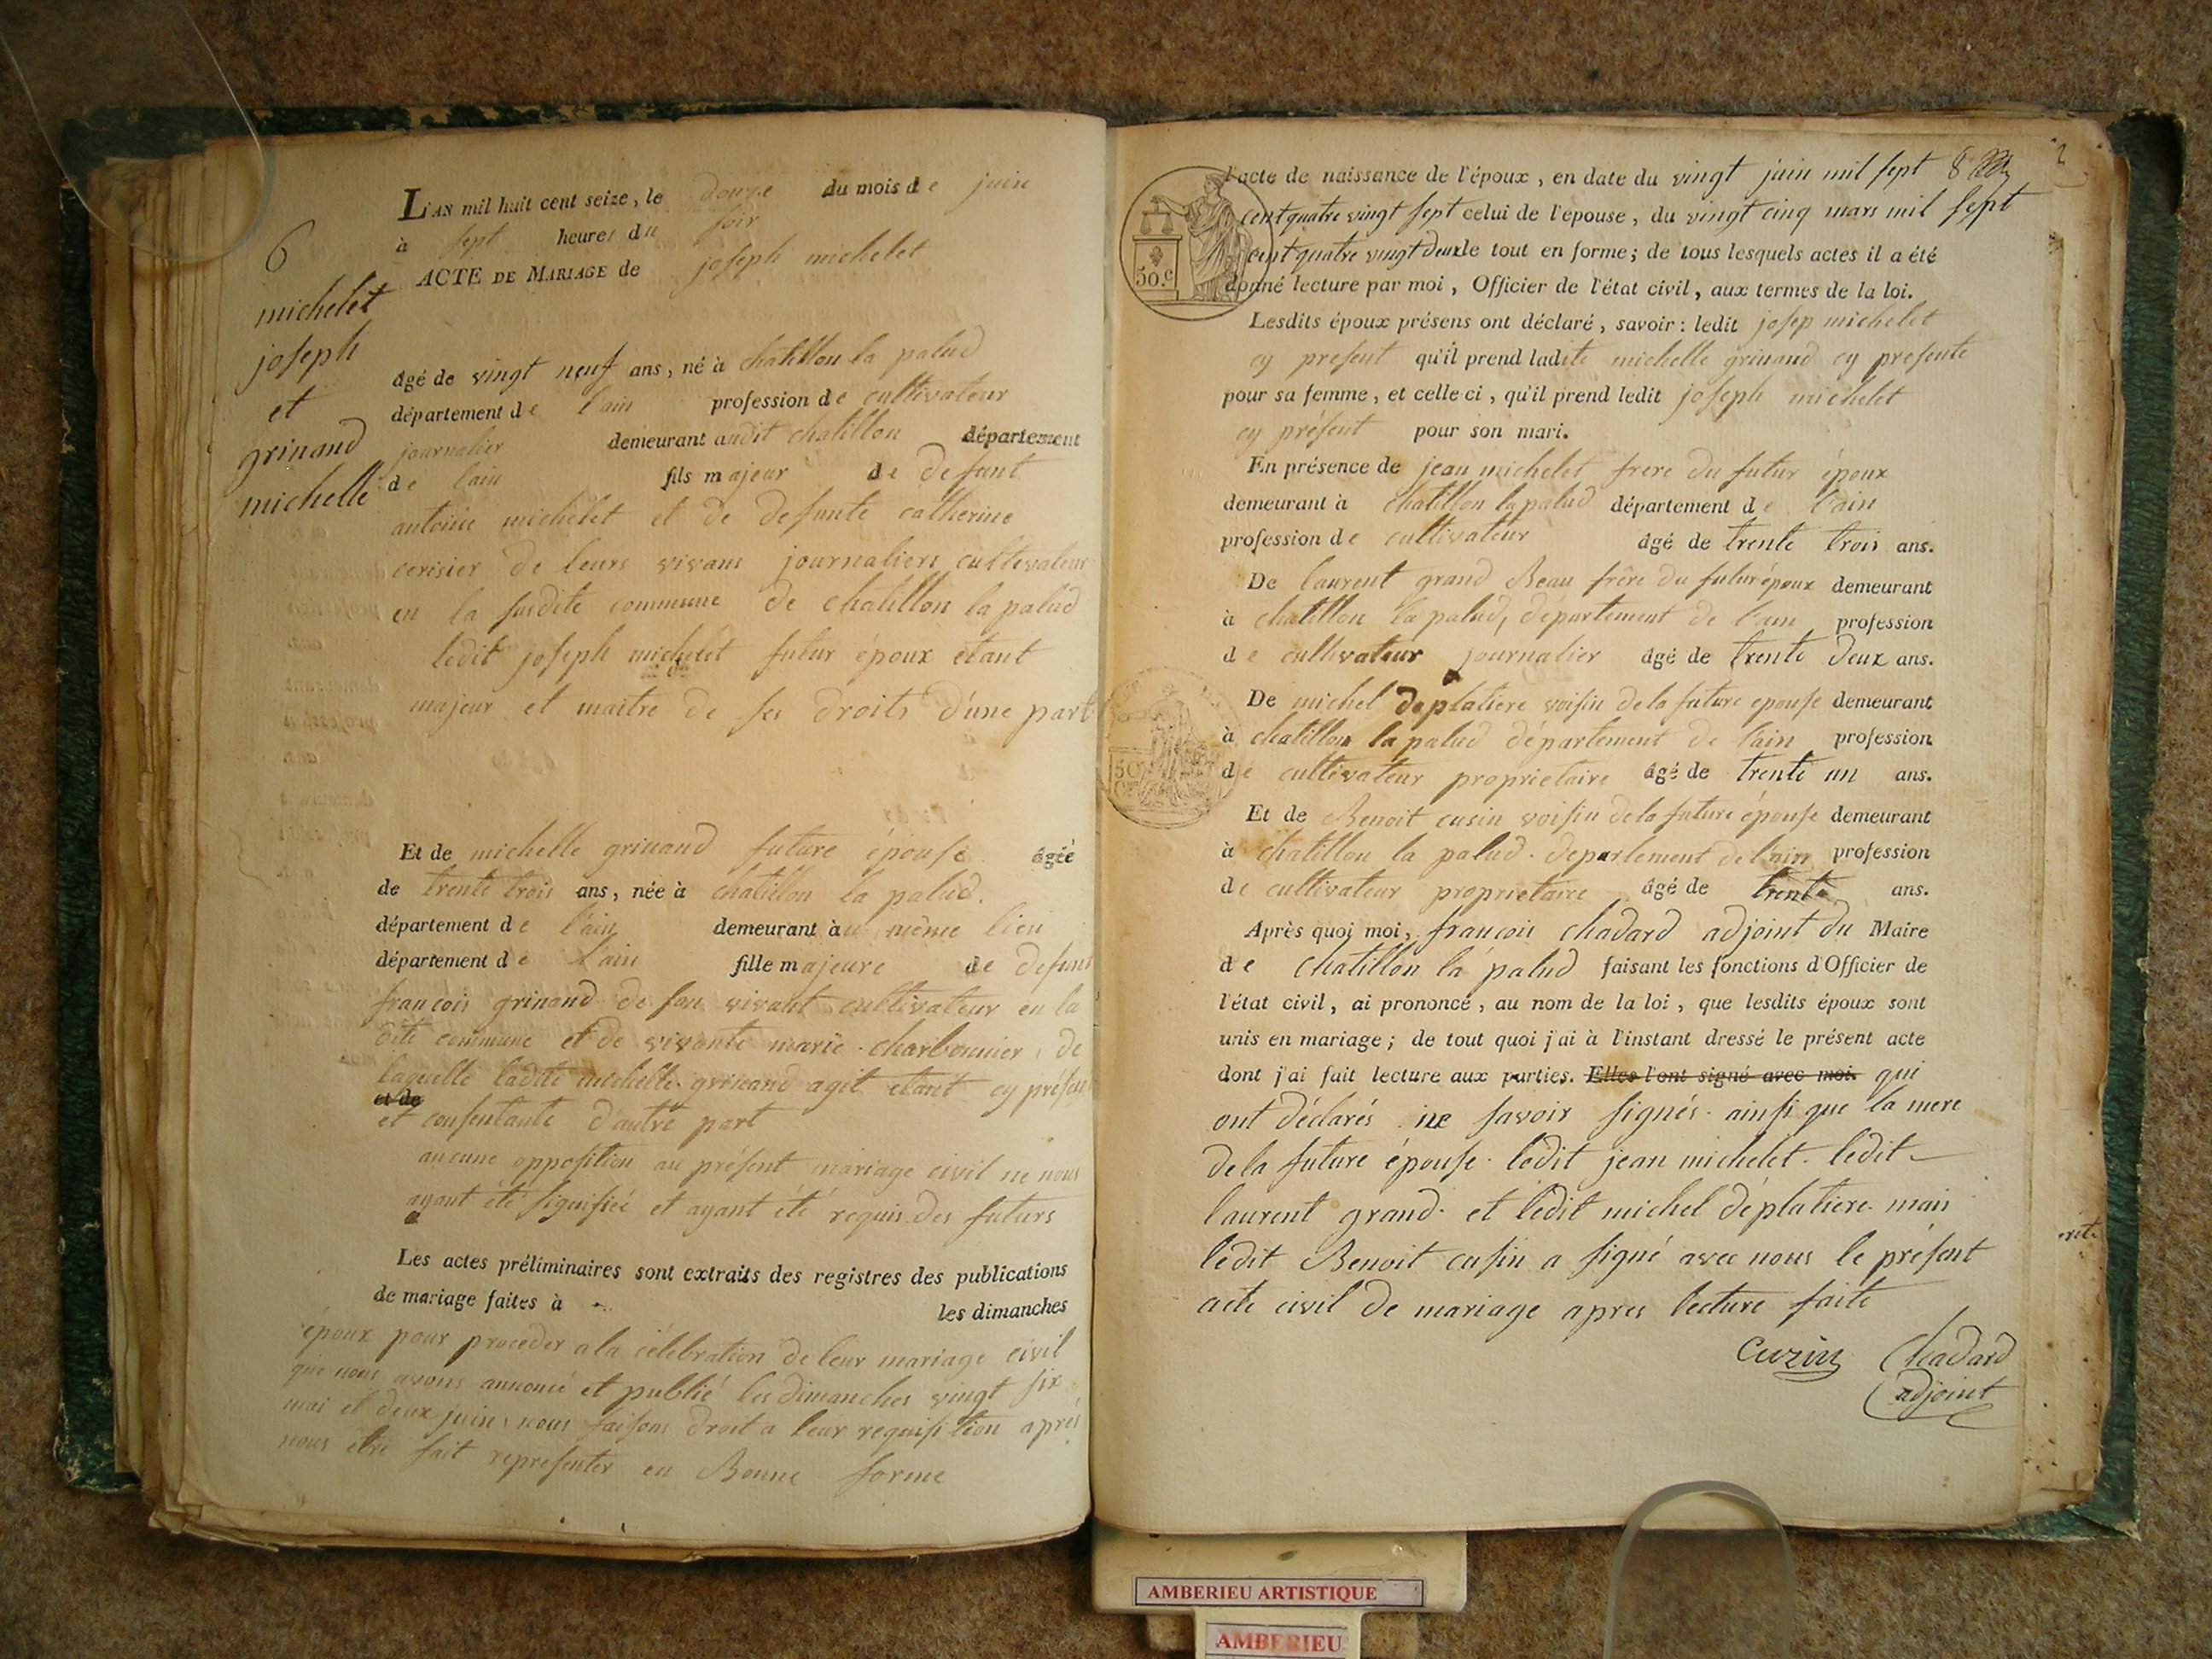 6
michelet
joseph
et
grinand
michelle
L'AN mil huit cent seize, le douze du mois de juin
à sept heures du soir
ACTE DE MARIAGE de joseph michelet
âgé de vingt neuf ans, né à chatillon la palud
département de l'ain profession de cultivateur
journalier demeurant audit chatillon département
de l'ain fils majeur de defunt
antoine michelet et de defunte catherine
cerisier de leurs vivans journaliers cultivateur
en la susdite commune de chatillon la palud
ledit joseph michelet futur époux etant
majeur et maitre de ses droits d'une part
Et de michelle grinand future épouse âgée
de trente trois ans, née à chatillon la palud.
département de l'ain demeurant au même lieu
département de l'ain fille majeure de defunt
francois grinand de son vivant cultivateur en la
dite commune et de vivante marie charbonnier, de
laquelle ladite michelle grinand agit etant cy présen
et de
et consentante d'autre part
aucune opposition au présent mariage civil ne nous
ayant été signifiée et ayant été requis des futurs
Les actes préliminaires sont extraits des registres des publications
de mariage faites à les dimanches
époux pour proceder a la célébration de leur mariage civil
que nous avons annoncé et publié les dimanches vingt six
mai et deux juin, nous faisons droit a leur requisition après
nous etre fait representer en Bonne forme
2
l'acte de naissance de l'époux, en date du vingt juin mil sept 8
cent quatre vingt sept celui de l'epouse, du vingt cinq mars mil sept
cent quatre vingt deux le tout en forme; de tous lesquels actes il a été
50.c
donné lecture par moi, Officier de l'état civil, aux termes de la loi.
Lesdits époux présens ont déclaré, savoir: ledit josep michelet
cy present qu'il prend ladite michelle grinand cy presente
pour sa femme, et celle ci, qu'il prend ledit joseph michelet
cy présent pour son mari.
En présence de jean michelet frere du futur époux
demeurant à chatillon la palud département de l'ain
profession de cultivateur âgé de trente trois ans.
De laurent grand Beau frère du futur époux demeurant
à chatillon la palud, département de l'ain profession
de cultivateur journalier âgé de trente deux ans.
De michel deplatiere voisin de la future epouse demeurant
à chatillon la palud département de l'ain profession
50
de cultivateur proprietaire âgé de trente un ans.
Et de Benoit cusin voisin de la future épouse demeurant
à chatillon la palud. departement de l'ain profession
de cultivateur proprietaire âgé de trente ans.
Après quoi moi, francois chadard adjoint du Maire
de chatillon la palud faisant les fonctions d'Officier de
l'état civil, ai prononcé, au nom de la loi, que lesdits époux sont
unis en mariage; de tout quoi j'ai à l'instant dressé le présent acte
dont j'ai fait lecture aux parties. Elles l'ont signé avec moi. qui
ont déclarés ne savoir signés. ainsi que la mere
de la future épouse. ledit jean michelet. ledit
laurent grand. et ledit michel déplatiere. mais
ledit Benoit cusin a signé avec nous le présent
acte civil de mariage apres lecture faite
Cuzin Chadard
adjoint
AMBERIEU ARTISTIQUE
AMBERIEU